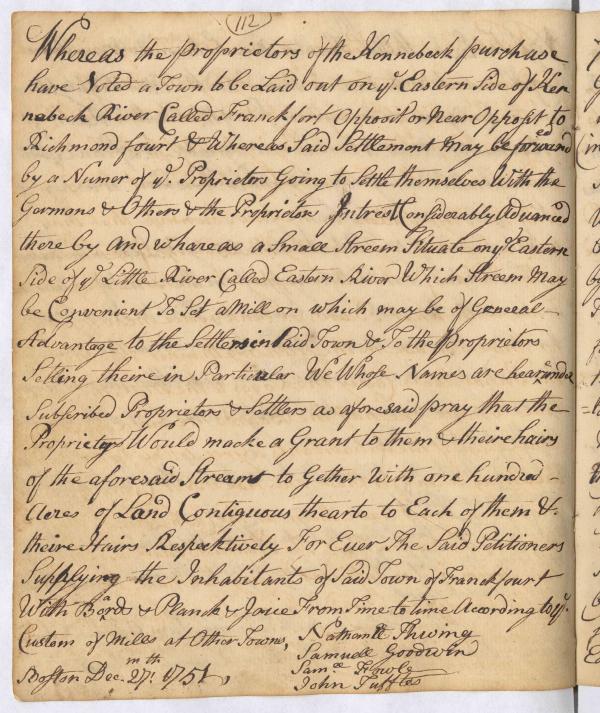 112
Whereas the Proprietors of the Kennebeck purchase
have Voted a Town to be Laid out on yᵉ. Eastern Side of Ken
nebeck River Called Franckfort Opposit or Near Opposit to
Richmond fourt & Whereas Said Settlement may be forward
by a Numer of yᵉ. Proprietors Going to Settle themselves With the
Germans & Others & the Proprietors Intrest Considerably Advanced
there by and whareas a Small Streem Situate on yᵉ Eastern
Side of yᵉ Little River Called Eastern River Which Streem May
be Convenient To Set a Mill on which may be of General
Advantage to the Settlers in Said Town & To the Proprietors
Setling theire in Particular We Whose Names are hearunder
Subscribed Proprietors & Settlers as aforesaid pray that the
Proprietors Would macke a Grant to them & theire hairs
of the aforesaid Stream to Gether With one hundred
Acres of Land Contiguous thearto to Each of them &
theire Hairs Respecktively For Ever The Said Petitioners
Supplying the Inhabitants of Said Town of Franckfourt
With Boards & Planck & Joice From Time to time According to yᵉ.
Custom of Mills at Other Towns, Nathanll Thwing
Samuell Goodwin
Boston Decmth. 27: 1751, Samll Fowle
John Tufts